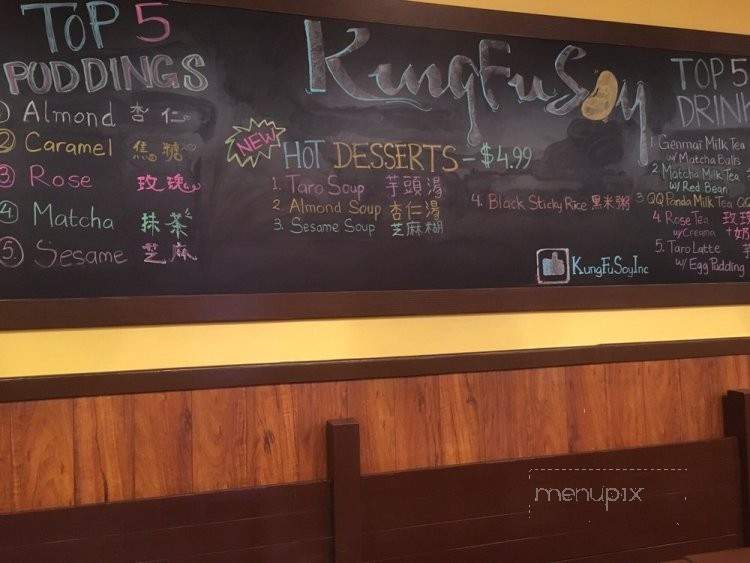 TOP 5
PUDDINGS
① Almond 杏仁
② Caramel 焦糖
③ Rose 玫瑰
④ Matcha 抹茶
⑤ Sesame 芝麻
KungFuSoy
NEW
HOT DESSERTS - $4.99
1. Taro Soup 芋頭湯
2. Almond Soup 杏仁湯
3. Sesame Soup 芝麻糊
4. Black Sticky Rice 黑米粥
KungFuSoyInc
TOP 5
DRIN
1. Genmai Milk Tea
w/ Matcha Balls
2. Matcha Milk Tea
w/ Red Bean
3 QQ Panda Milk Tea QQ
4. Rose Tea 玫瑰
w/ Creama +奶
5. Taro Latte
w/ Egg Pudding
menupix